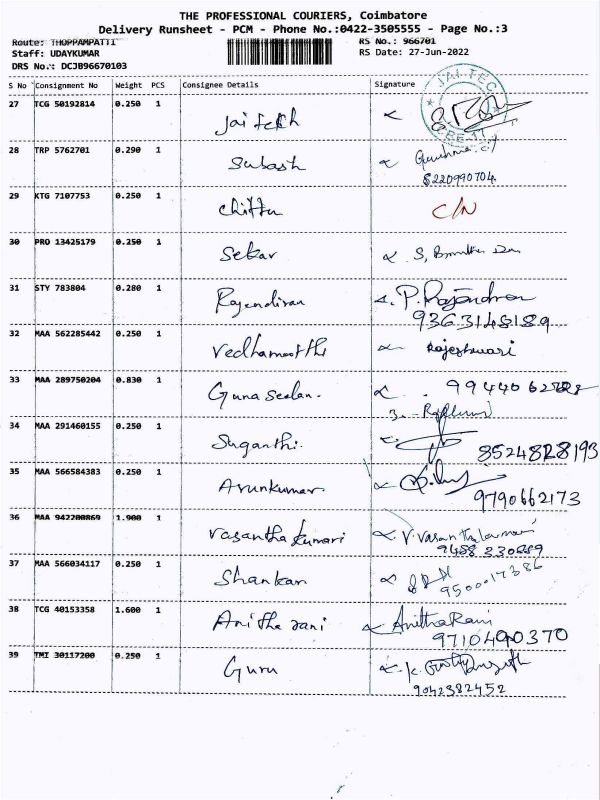 THE PROFESSIONAL COURIERS, Coimbatore
Delivery Runsheet - PCM - Phone No.:0422-3505555 - Page No.:3
Route: THOPPAMPATTI RS No.: 966701
Staff: UDAYKUMAR RS Date: 27-Jun-2022
DRS No.: DCJB96670103
S No Consignment No Weight PCS Consignee Details Signature
27 TCG 50192814 0.250 1
JAI TEC
28 TRP 5762701 0.290 1 Subash
8220990704
29 KTG 7107753 0.250 1 Chittu C/N
30 PRO 13425179 0.250 1 Sekar S,
31 STY 783804 0.280 1 Rajendiran P. Rajendran
9363148189
32 MAA 562285442 0.250 1 Vedhamoorthi Rajeshwari
33 MAA 289750204 0.830 1 Guna Seelan.
34 MAA 291460155 0.250 1 Suganthi.
8524828193
35 MAA 566584383 0.250 1 Arunkumar
9790662173
36 MAA 942200869 1.900 1 Vasantha kumari V. Vasanthakumari
37 MAA 566034117 0.250 1 Shankar
9500017386
38 TCG 40153358 1.600 1 Anitha rani Anitha Rani
9710490370
39 TMI 30117200 0.250 1 Guru
9042382452